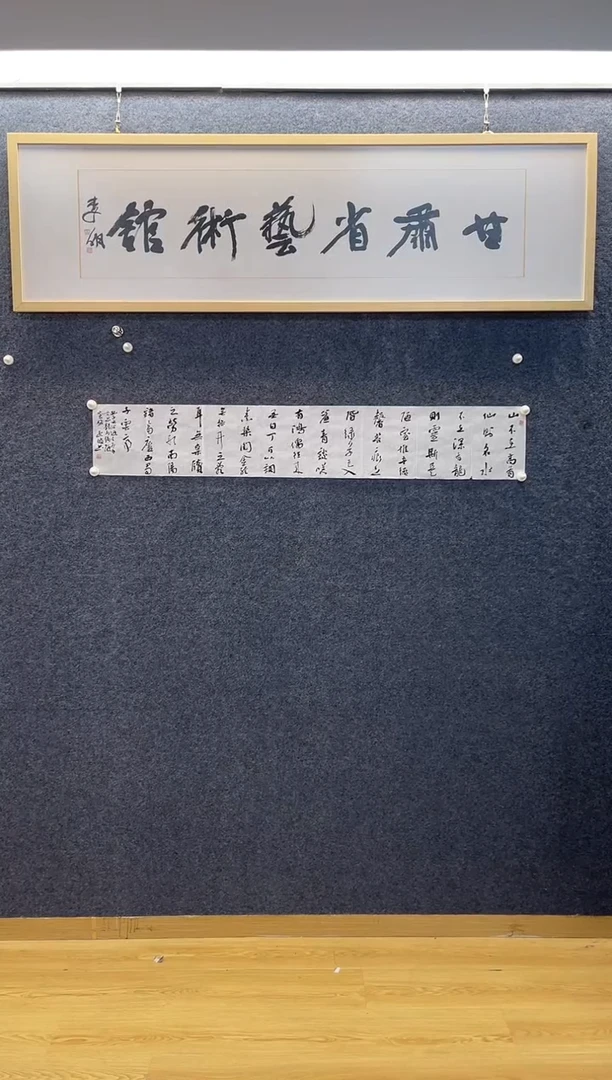 甘肅省藝術館
山不在高有
仙則名水
不在深有龍
則靈斯是
陋室惟吾德
馨苔痕上
階綠草色入
簾青談笑
有鴻儒往来
無白丁可以調
素琴閱金經
無絲竹之亂
耳無案牘
之勞形南陽
諸葛廬西蜀
子雲亭